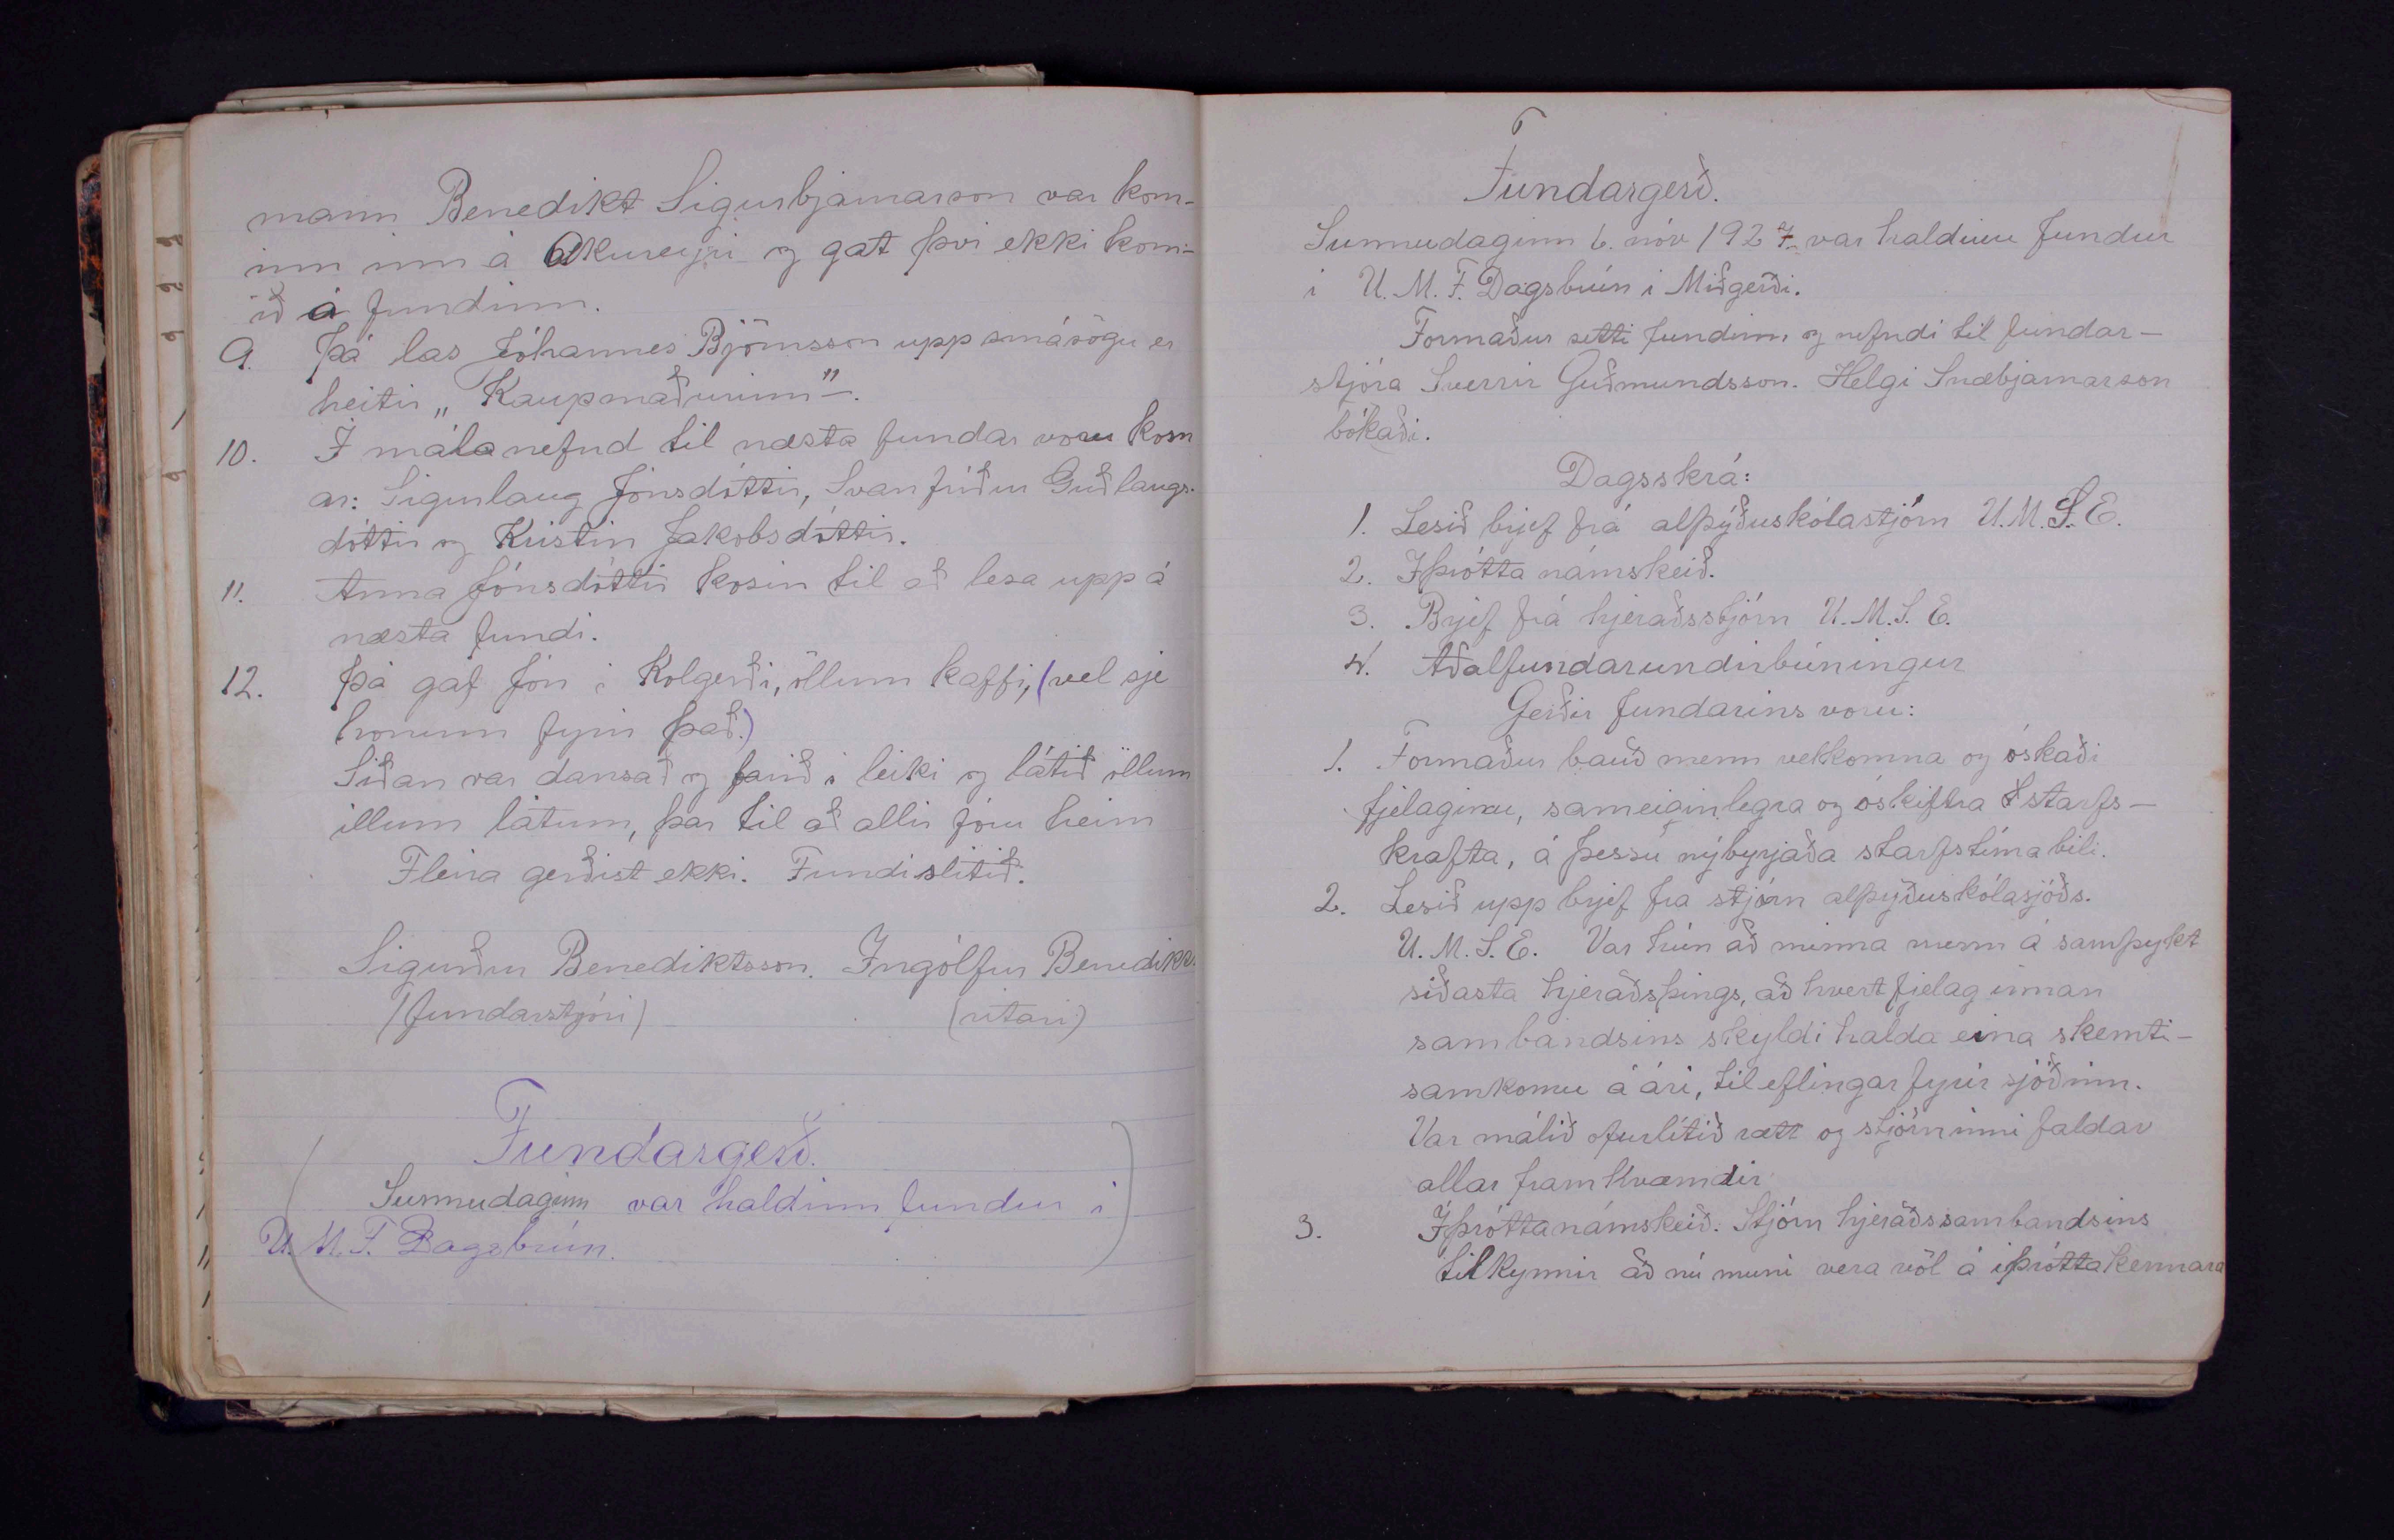 mann Benedikt Sigurbjarnarson var kom-
inn inn á Akureyri og gat því ekki kom-
ið á fundinn.
9. Þá las Jóhannes Björnsson upp smásögu er
heitir „Kaupmaðurinn".
10. Í málanefnd til næsta fundar voru kosn
ar: Sigurlaug Jónsdóttir, Svanfríður Guðlaugs-
dóttir og Kristín Jakobsdóttir.
11. Anna Jónsdóttir kosin til að lesa upp á
næsta fundi.
12. Þá gaf Jón í Kolgerði, öllum kaffi, (vel sje
honum fyrir það.)
Síðan var dansað og farið í leiki og látið öllum
illum látum, þar til að allir fóru heim
Fleira gerðist ekki. Fundi slitið.
Sigurður Benediktsson. Ingólfur Benedikts.
(fundarstjóri) (ritari)
Fundargerð.
Sunnudaginn var haldinn fundur í
U. M. F. Dagsbrún.
Fundargerð.
Sunnudaginn 6. nóv 1927. var haldinn fundur
í U. M. F. Dagsbrún í Miðgerði.
Formaður setti fundinn og nefndi til fundar-
stjóra Sverrir Guðmundsson. Helgi Snæbjarnarson
bókaði.
Dagsskrá:
1. Lesið brjef frá alþýðuskólastjórn U. M. S. E.
2. Íþrótta námskeið.
3. Brjef frá hjeraðsstjórn U. M. S. E.
4. Aðalfundarundirbúningur
Gerðir fundarins voru:
1. Formaður bauð menn velkomna og óskaði
fjelaginu, sameiginlegra og óskiftra starfs-
krafta, á þessu nýbyrjaða starfstímabili.
2. Lesið upp brjef fra stjórn alþýðuskólasjóðs.
U. M. S. E. Var hún að minna menn á samþykt
síðasta hjeraðsþings, að hvert fjelag innan
sambandsins skyldi halda eina skemti-
samkomu á ári, til eflingar fyrir sjóðinn.
Var málið ofurlítið rætt og stjórninni faldar
allar framkvæmdir
3. Íþróttanámskeið. Stjórn hjeraðssambandsins
tilkynnir að nú muni vera völ á íþróttakennara